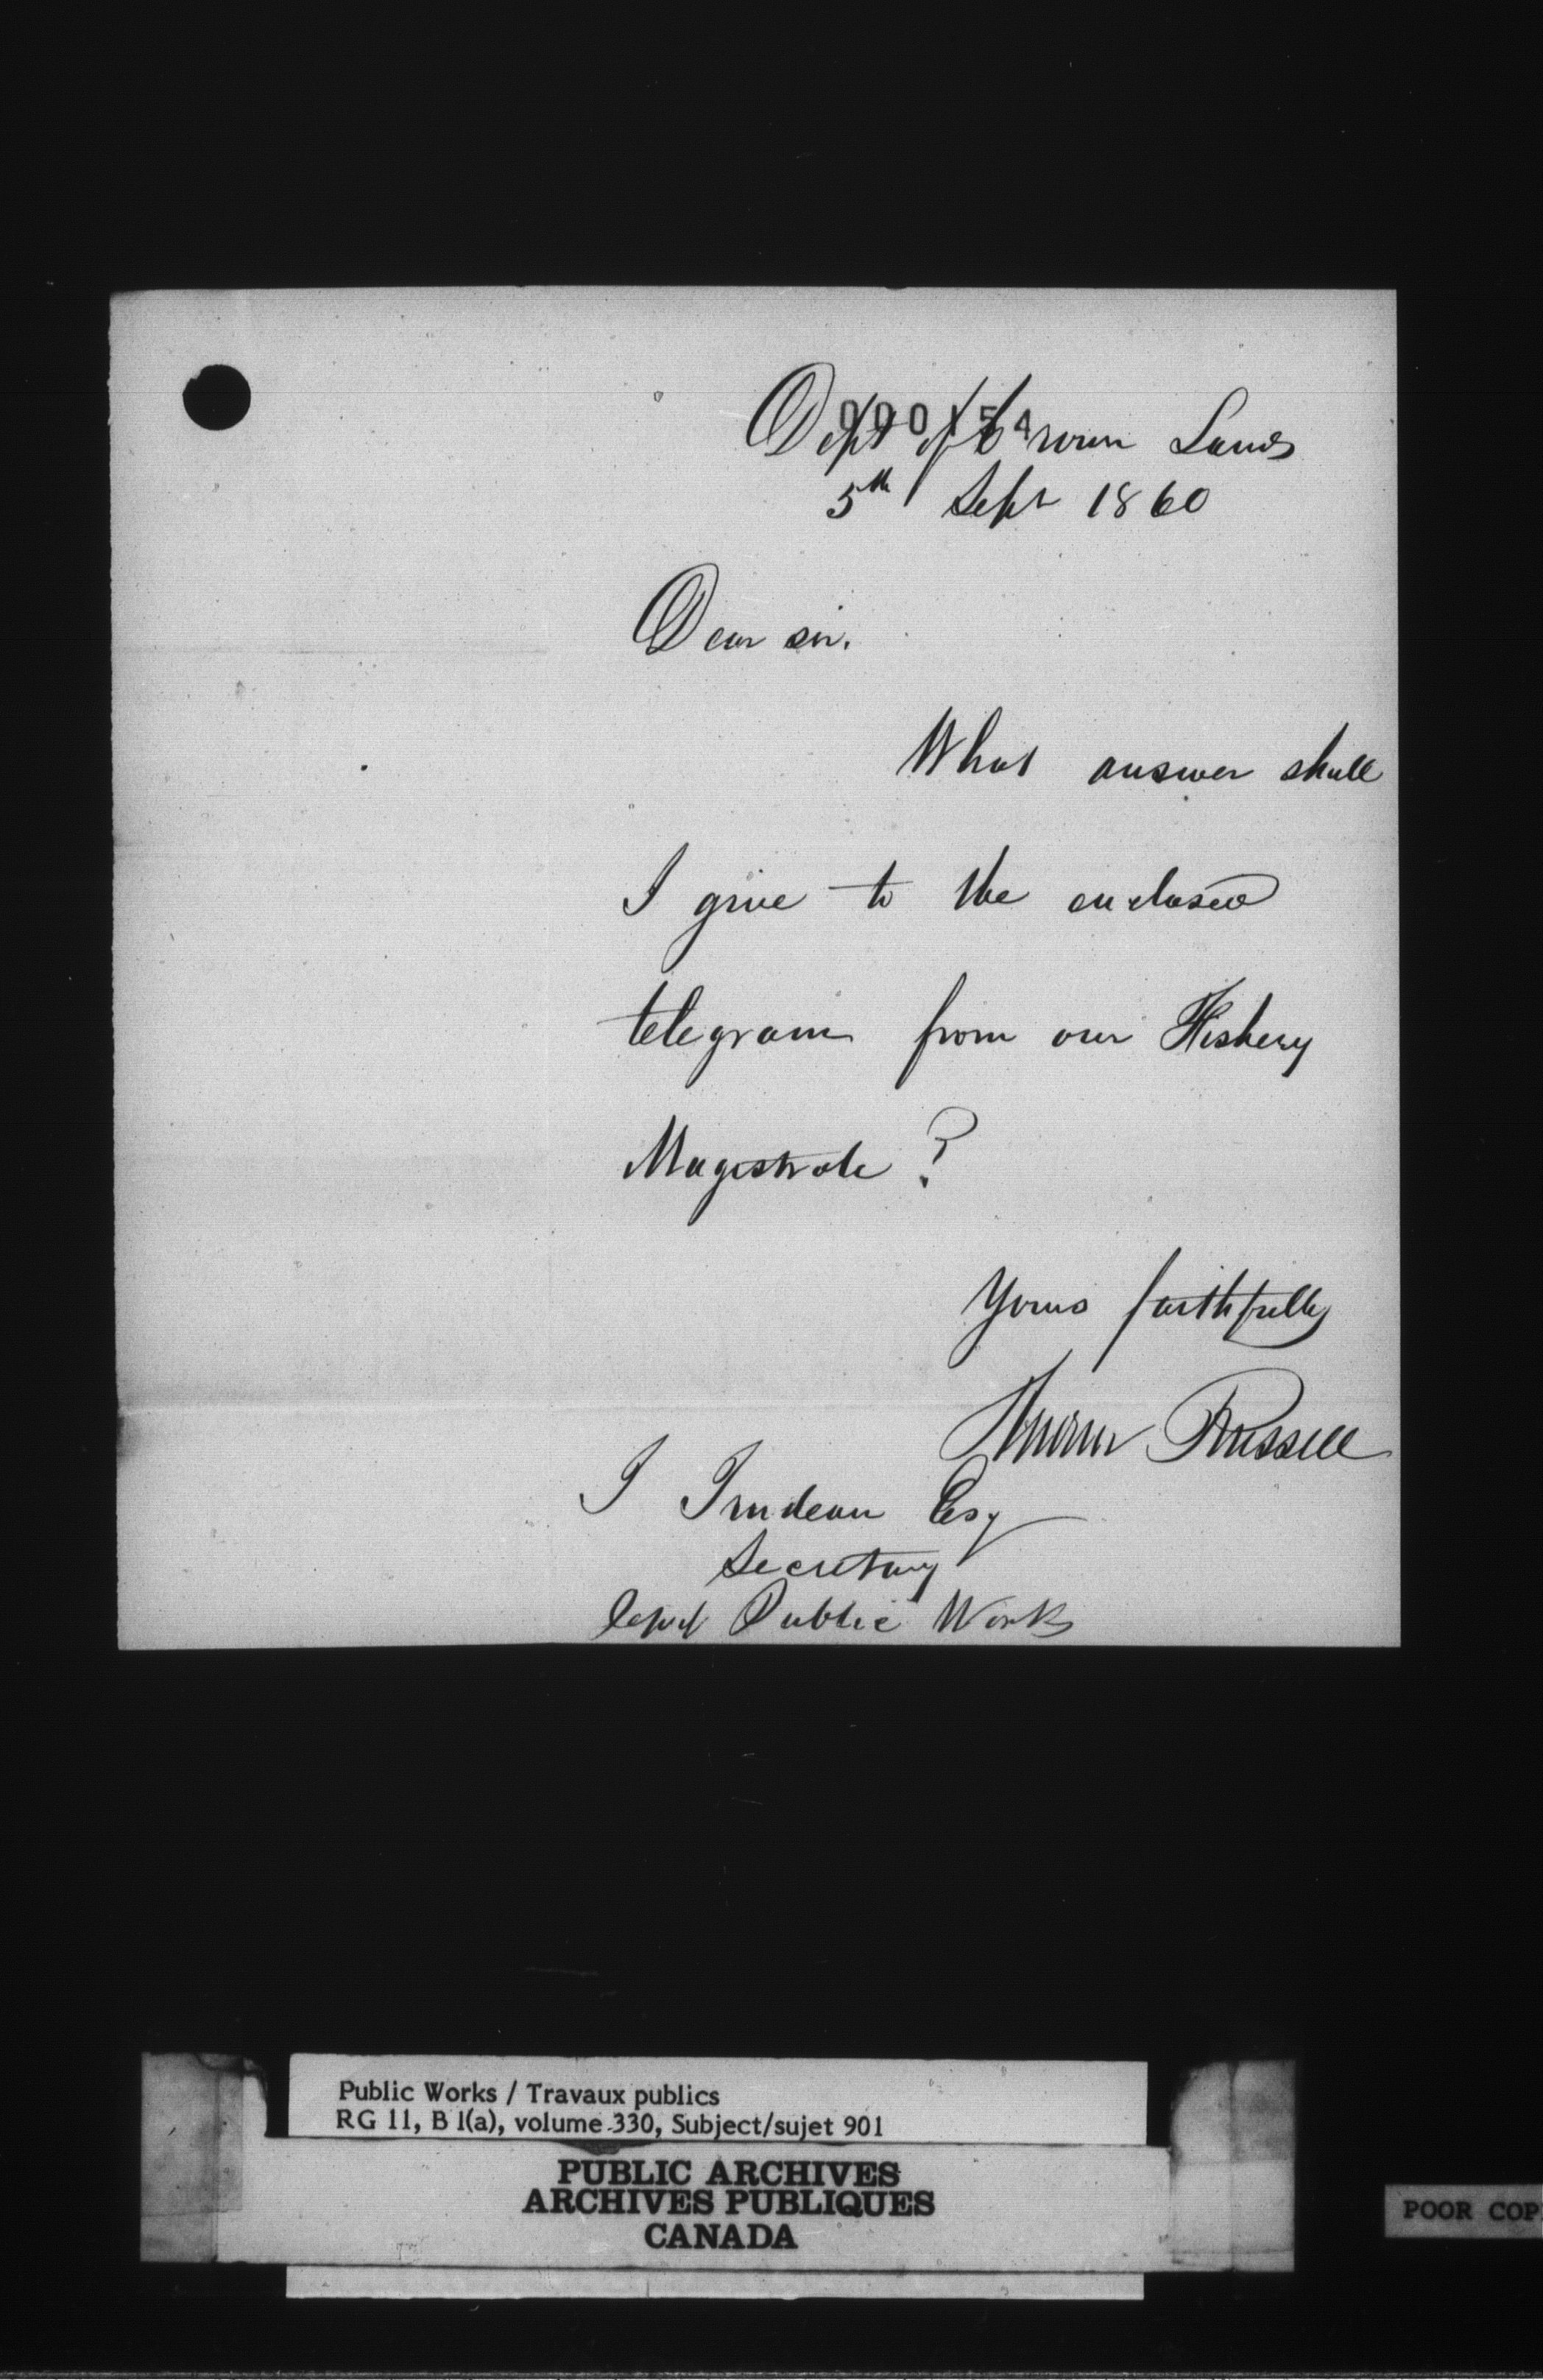 000154
Dept of Crown Lands
5th Sept 1860
Dear sir.
What answer shall
I give to the enclosed
telegram from our Fishery
Magistrate ?
Yours faithfully
Andrew Russell
T Trudeau Esq
Secretary
Dept Public Works
Public Works / Travaux publics
RG 11, B 1(a), volume 330, Subject/sujet 901
PUBLIC ARCHIVES
ARCHIVES PUBLIQUES
CANADA
POOR COP